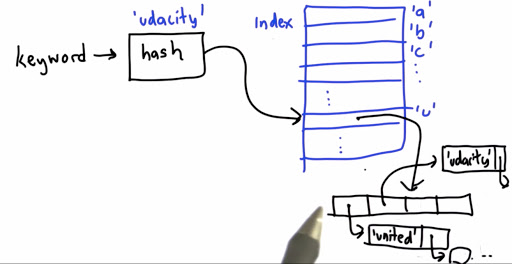 'udacity'
keyword
hash
Index
'a'
'b'
'c'
'u'
'udacity'
'united'